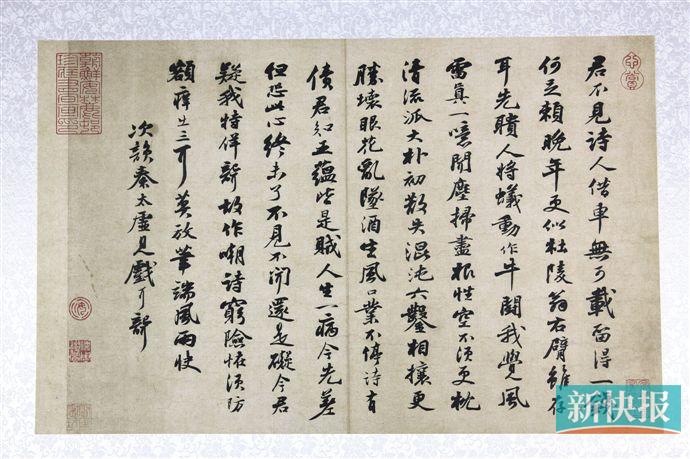 君不見詩人借車無可載留得一錢
何足賴晚年更似杜陵翁右臂雖存
耳先聵人將蟻動作牛鬪我覺風
雷真一噫聞塵掃盡根性空不須更枕
清流派大朴初散失混沌六鑿相攘更
勝壞眼花亂墜酒生風口業不停詩有
債君知五蘊皆是賊人生一病今先差
但恐此心終未了不見不聞還是礙今君
疑我特佯聾故作嘲詩窮險怪須防
額痒出三耳莫放筆端風雨快
次韻秦太虛見戲耳聾
新快报